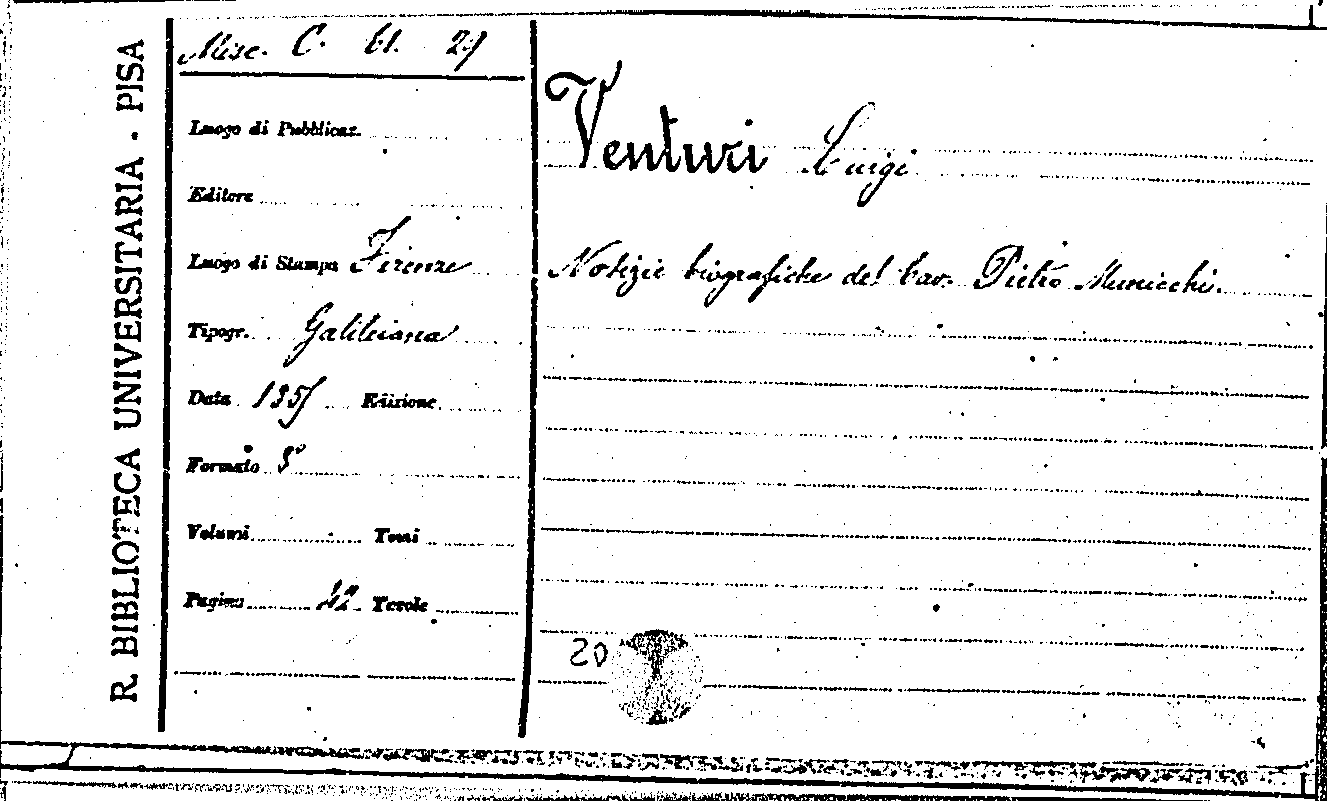 R. BIBLIOTECA UNIVERSITARIA - PISA
Misc. C. 61. 29
Luogo di Pubblicaz.
Editore
Luogo di Stampa Firenze
Tipogr. Galileiana
Data Edizione
Formato 8°
Volumi Tomi
Pagine Tavole
Venturi Luigi
Notizie biografiche del Cav. Pietro Municchi.
20